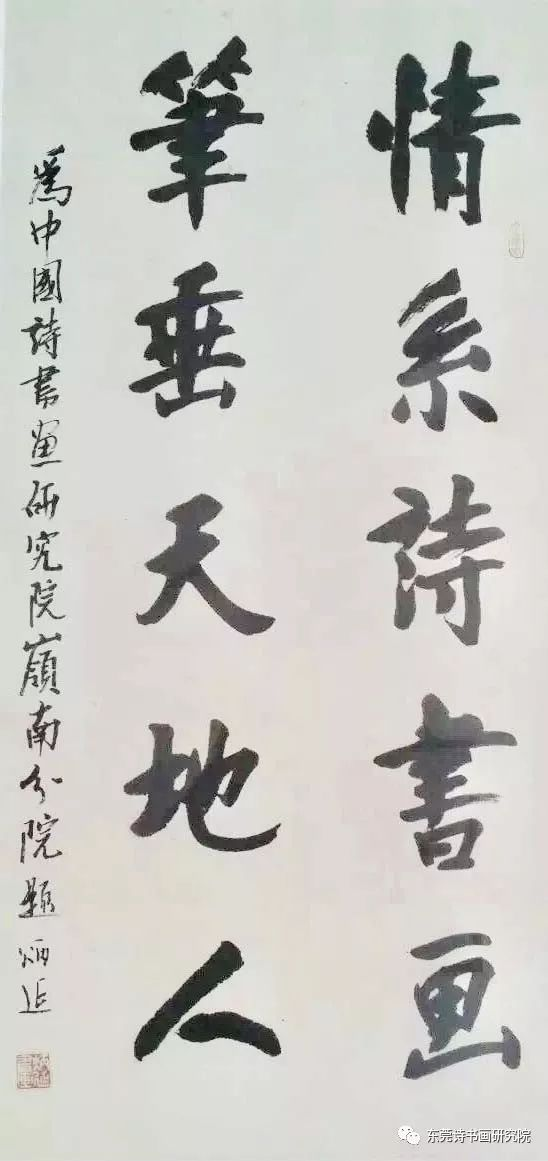 情系詩書画
筆垂天地人
為中國詩書画研究院嶺南分院題 炳
东莞诗书画研究院